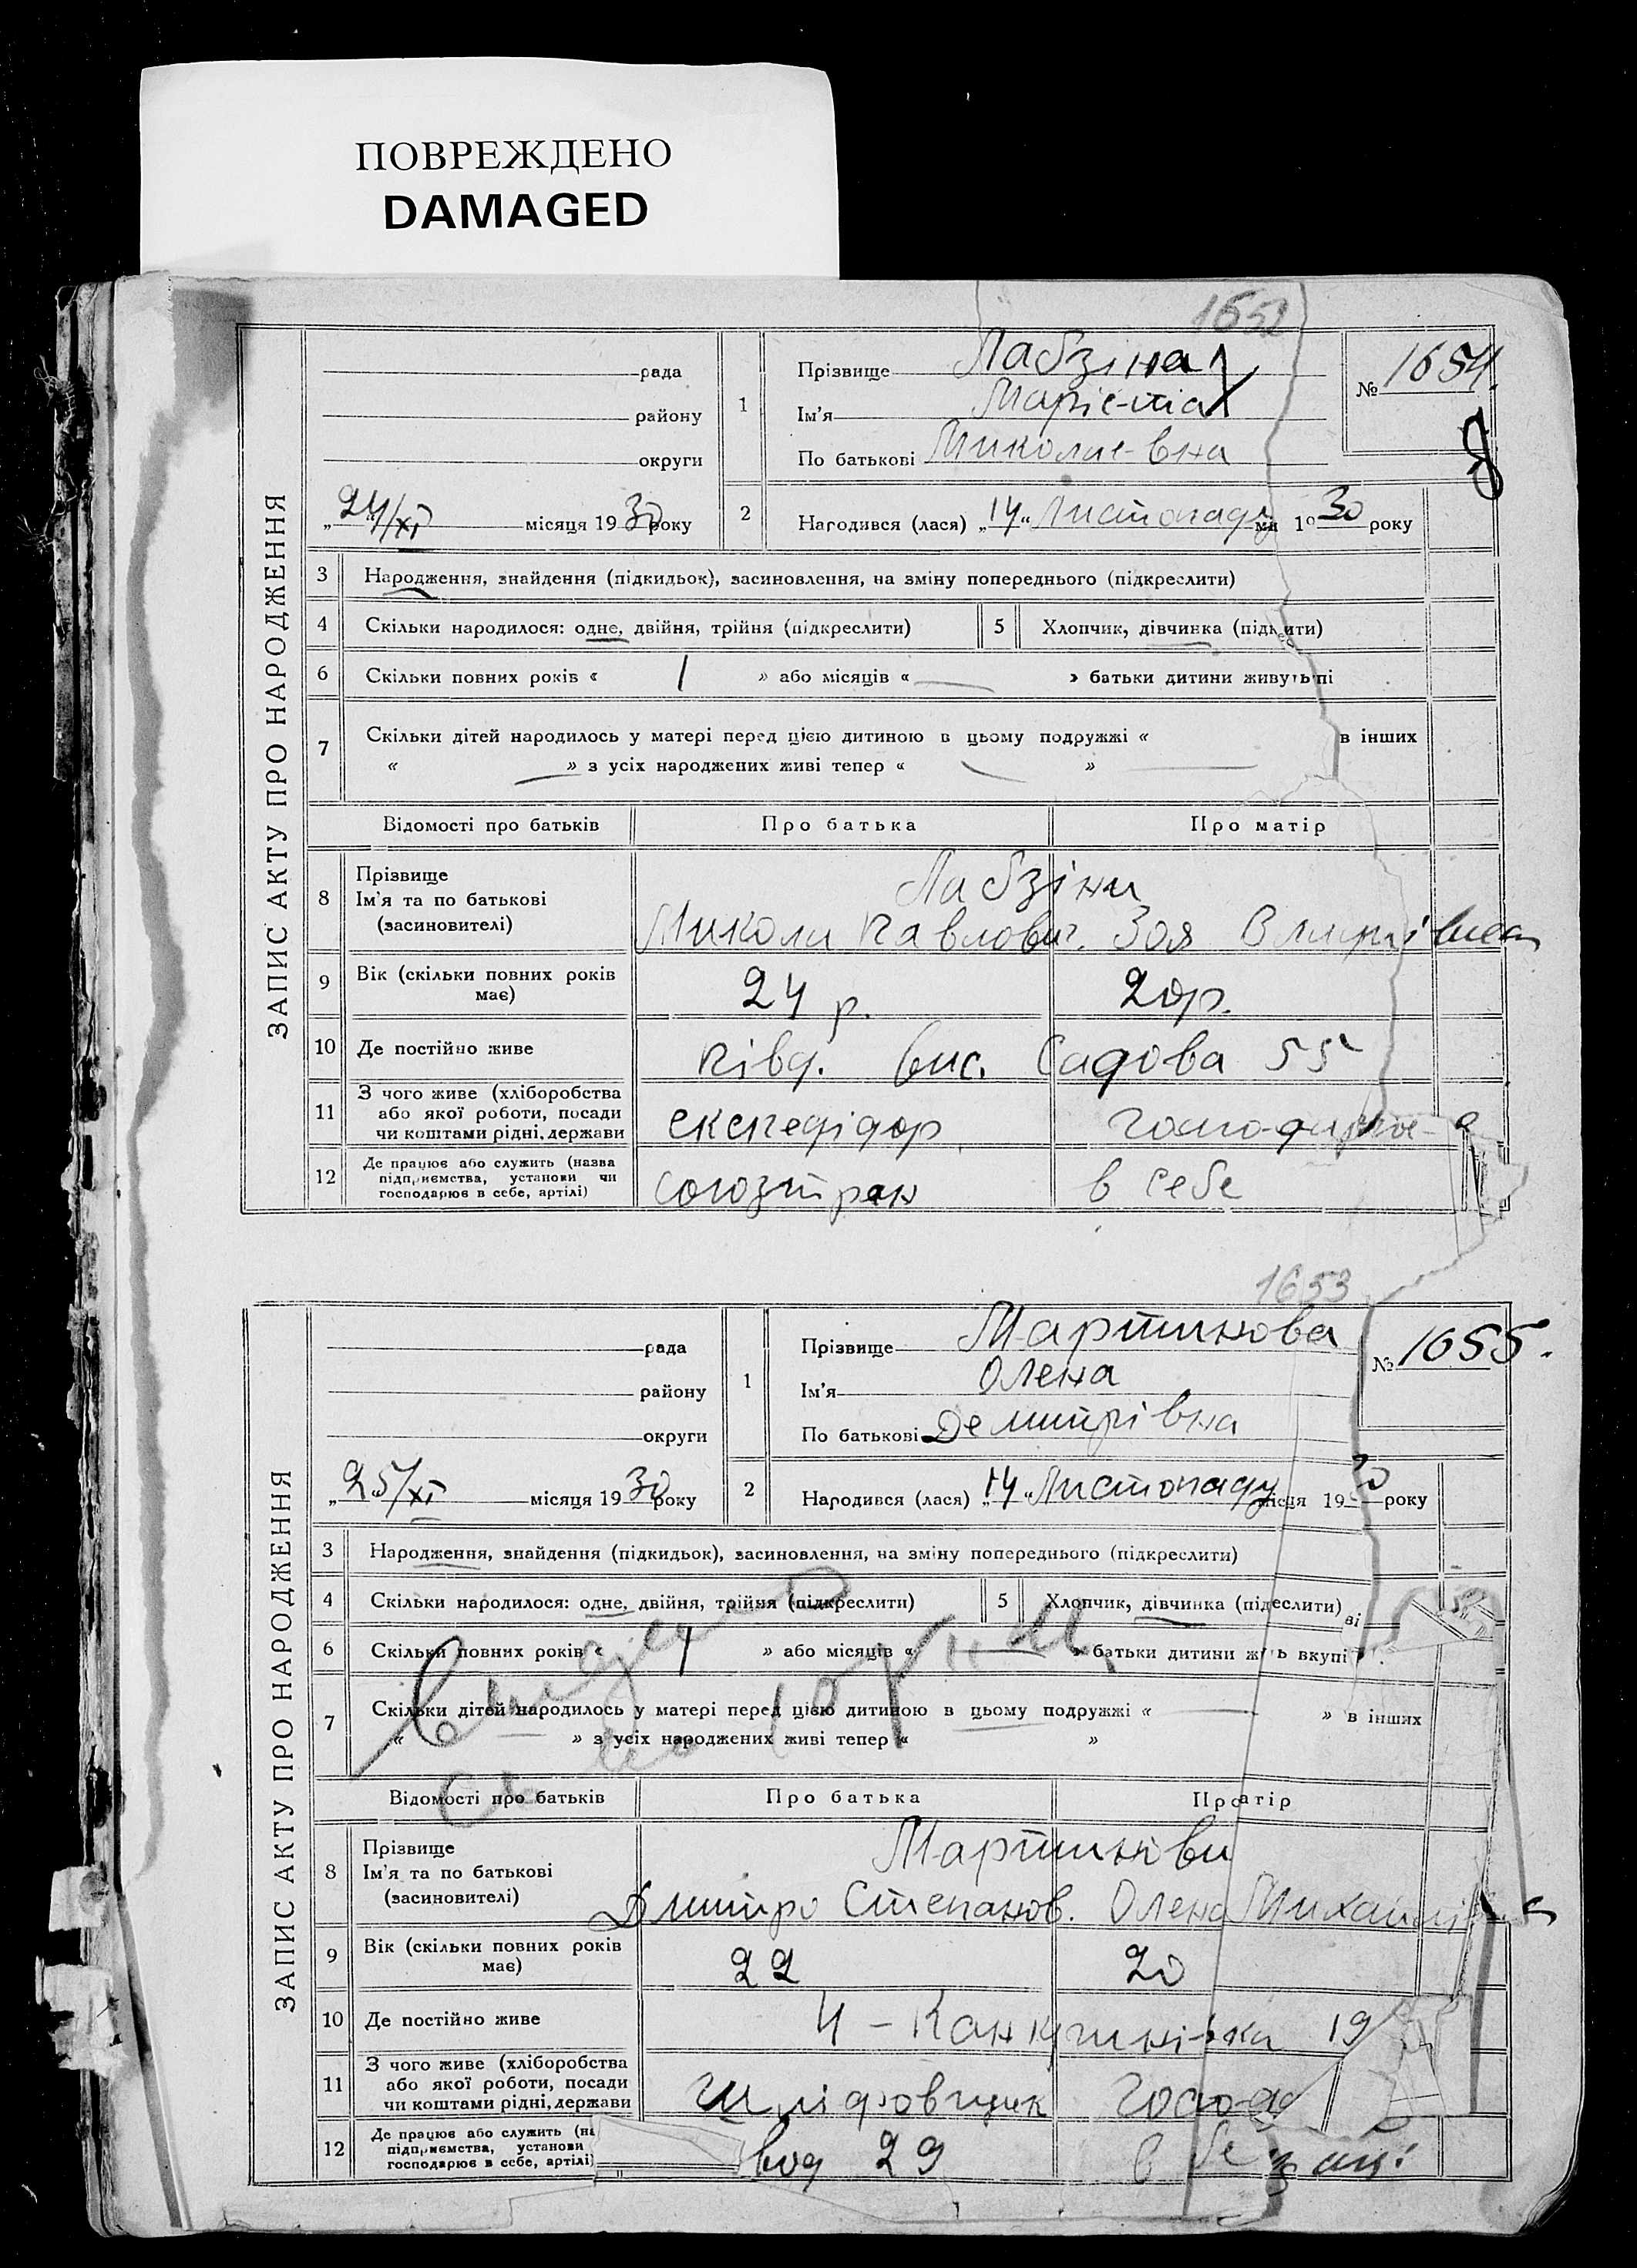 ПОВРЕЖДЕНО
DAMAGED
1652
ЗАПИС АКТУ ПРО НАРОДЖЕННЯ
рада
району
округи
„24/XI місяця 1930 року
1
Прізвище Лабзіна
Ім'я
По батькові Миколаєвна
№ 1654.
2
Народився (лася) „14“ Листопаду 1930 року
3 Народження, знайдення (підкидьок), засиновлення, на зміну попереднього (підкреслити)
4 Скільки народилося: одне, двійня, трійня (підкреслити)
5 Хлопчик, дівчинка
6 Скільки повних років « 1 » або місяців « — » батьки дитини живуть
7 Скільки дітей народилось у матері перед цією дитиною в цьому подружжі « в інших
« — » з усіх народжених живі тепер « — » —
Відомості про батьків Про батька Про матір
8 Прізвище
Ім'я та по батькові
(засновителі)
Лабзіни
Миколи Павлович. Зоя
9 Вік (скільки повних років має) 24 р. 20р.
10 Де постійно живе Півд. вис. Садова 55
11 З чого живе (хліборобства
або якої роботи, посади
чи коштами рідні, держави
експедідор
12 Де працює або служить (назва
підприємства, установи чи
господарює в себе, артілі)
союзтран в себе
1653
ЗАПИС АКТУ ПРО НАРОДЖЕННЯ
рада
району
округи
„25/XI місяця 1930 року
1
Прізвище Мартинова
Ім'я Олена
По батькові Демитрівна
№ 1655.
2
Народився (лася) „14“ Листопаду місця 1930 року
3 Народження, знайдення (підкидьок), засиновлення, на зміну попереднього (підкреслити)
4 Скільки народилося: одне, двійня, трійня (підкреслити)
5 Хлопчик, дівчинка
6 Скільки повних років « 1 » або місяців « — » батьки дитини вкупі
7 Скільки дітей народилось у матері перед цією дитиною в цьому подружжі « — » в інших
« » з усіх народжених живі тепер « »
Відомості про батьків Про батька
8 Прізвище
Ім'я та по батькові
(засиновителі)
Мартинови
Дмитро Степанов. Олена
9 Вік (скільки повних років має) 22 20
10 Де постійно живе 19
11 З чого живе (хліборобства
або якої роботи, посади
чи коштами рідні, держави
шліфовщик
12 Де працює або служить
підприємства, установи
господарює в себе, артілі)
29 в